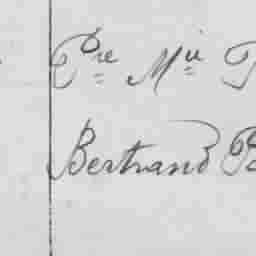 Pre Mie
Bertrand